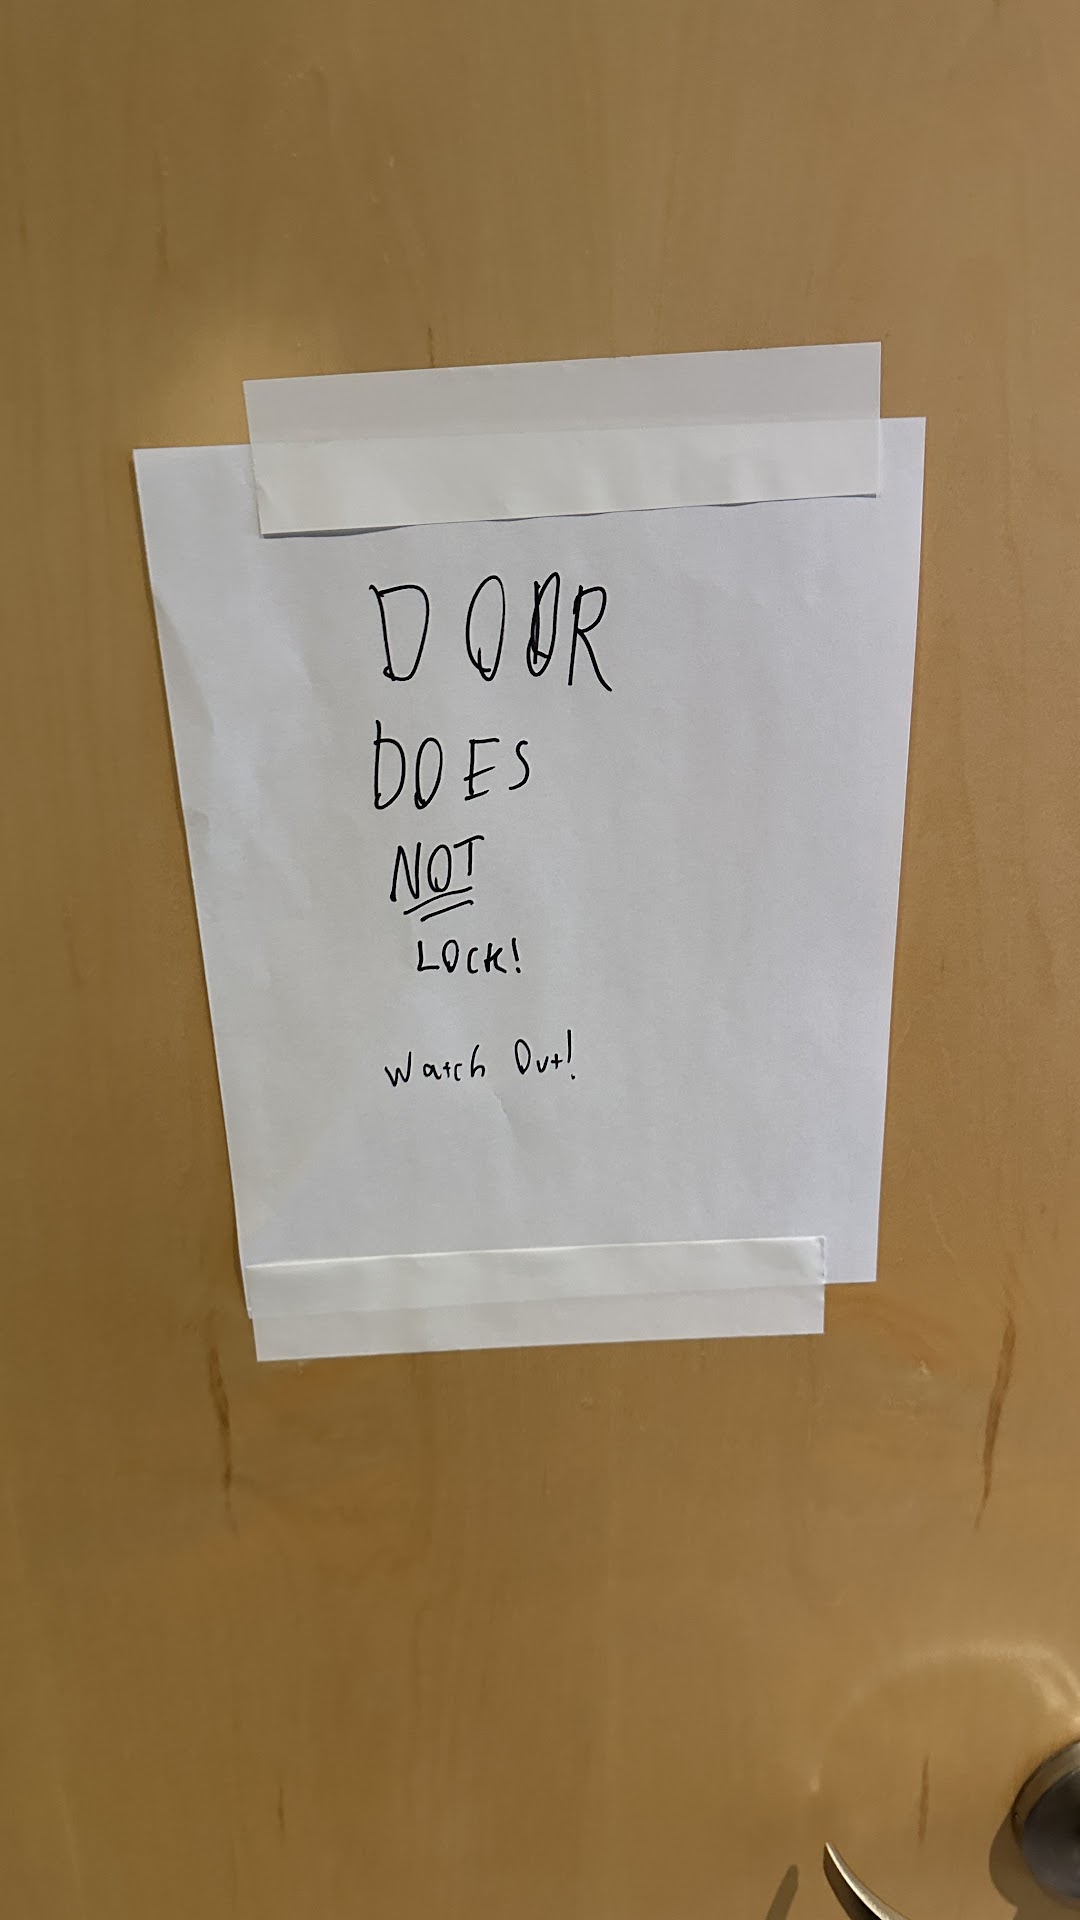 DOOR
DOES
NOT
LOCK!
Watch Out!